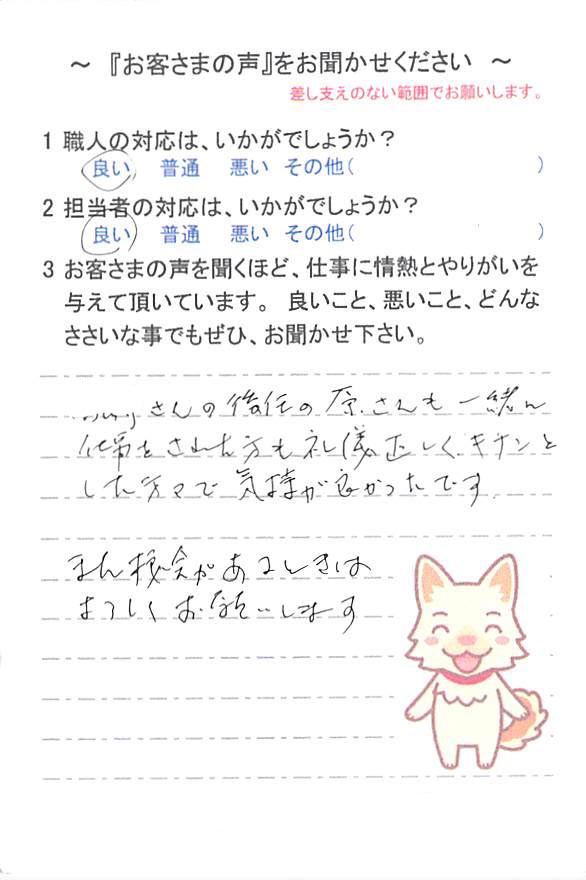 ～ 『お客さまの声』をお聞かせください ～
差し支えのない範囲でお願いします。
1 職人の対応は、いかがでしょうか？
良い 普通 悪い その他( )
2 担当者の対応は、いかがでしょうか？
良い 普通 悪い その他( )
3 お客さまの声を聞くほど、仕事に情熱とやりがいを
与えて頂いています。 良いこと、悪いこと、どんな
ささいな事でもぜひ、お聞かせ下さい。
さんの後任の原さんも一緒に
仕事をされた方も礼儀正しくキチンと
した方々で気持が良かったです
また機会があるときは
よろしくお願いします